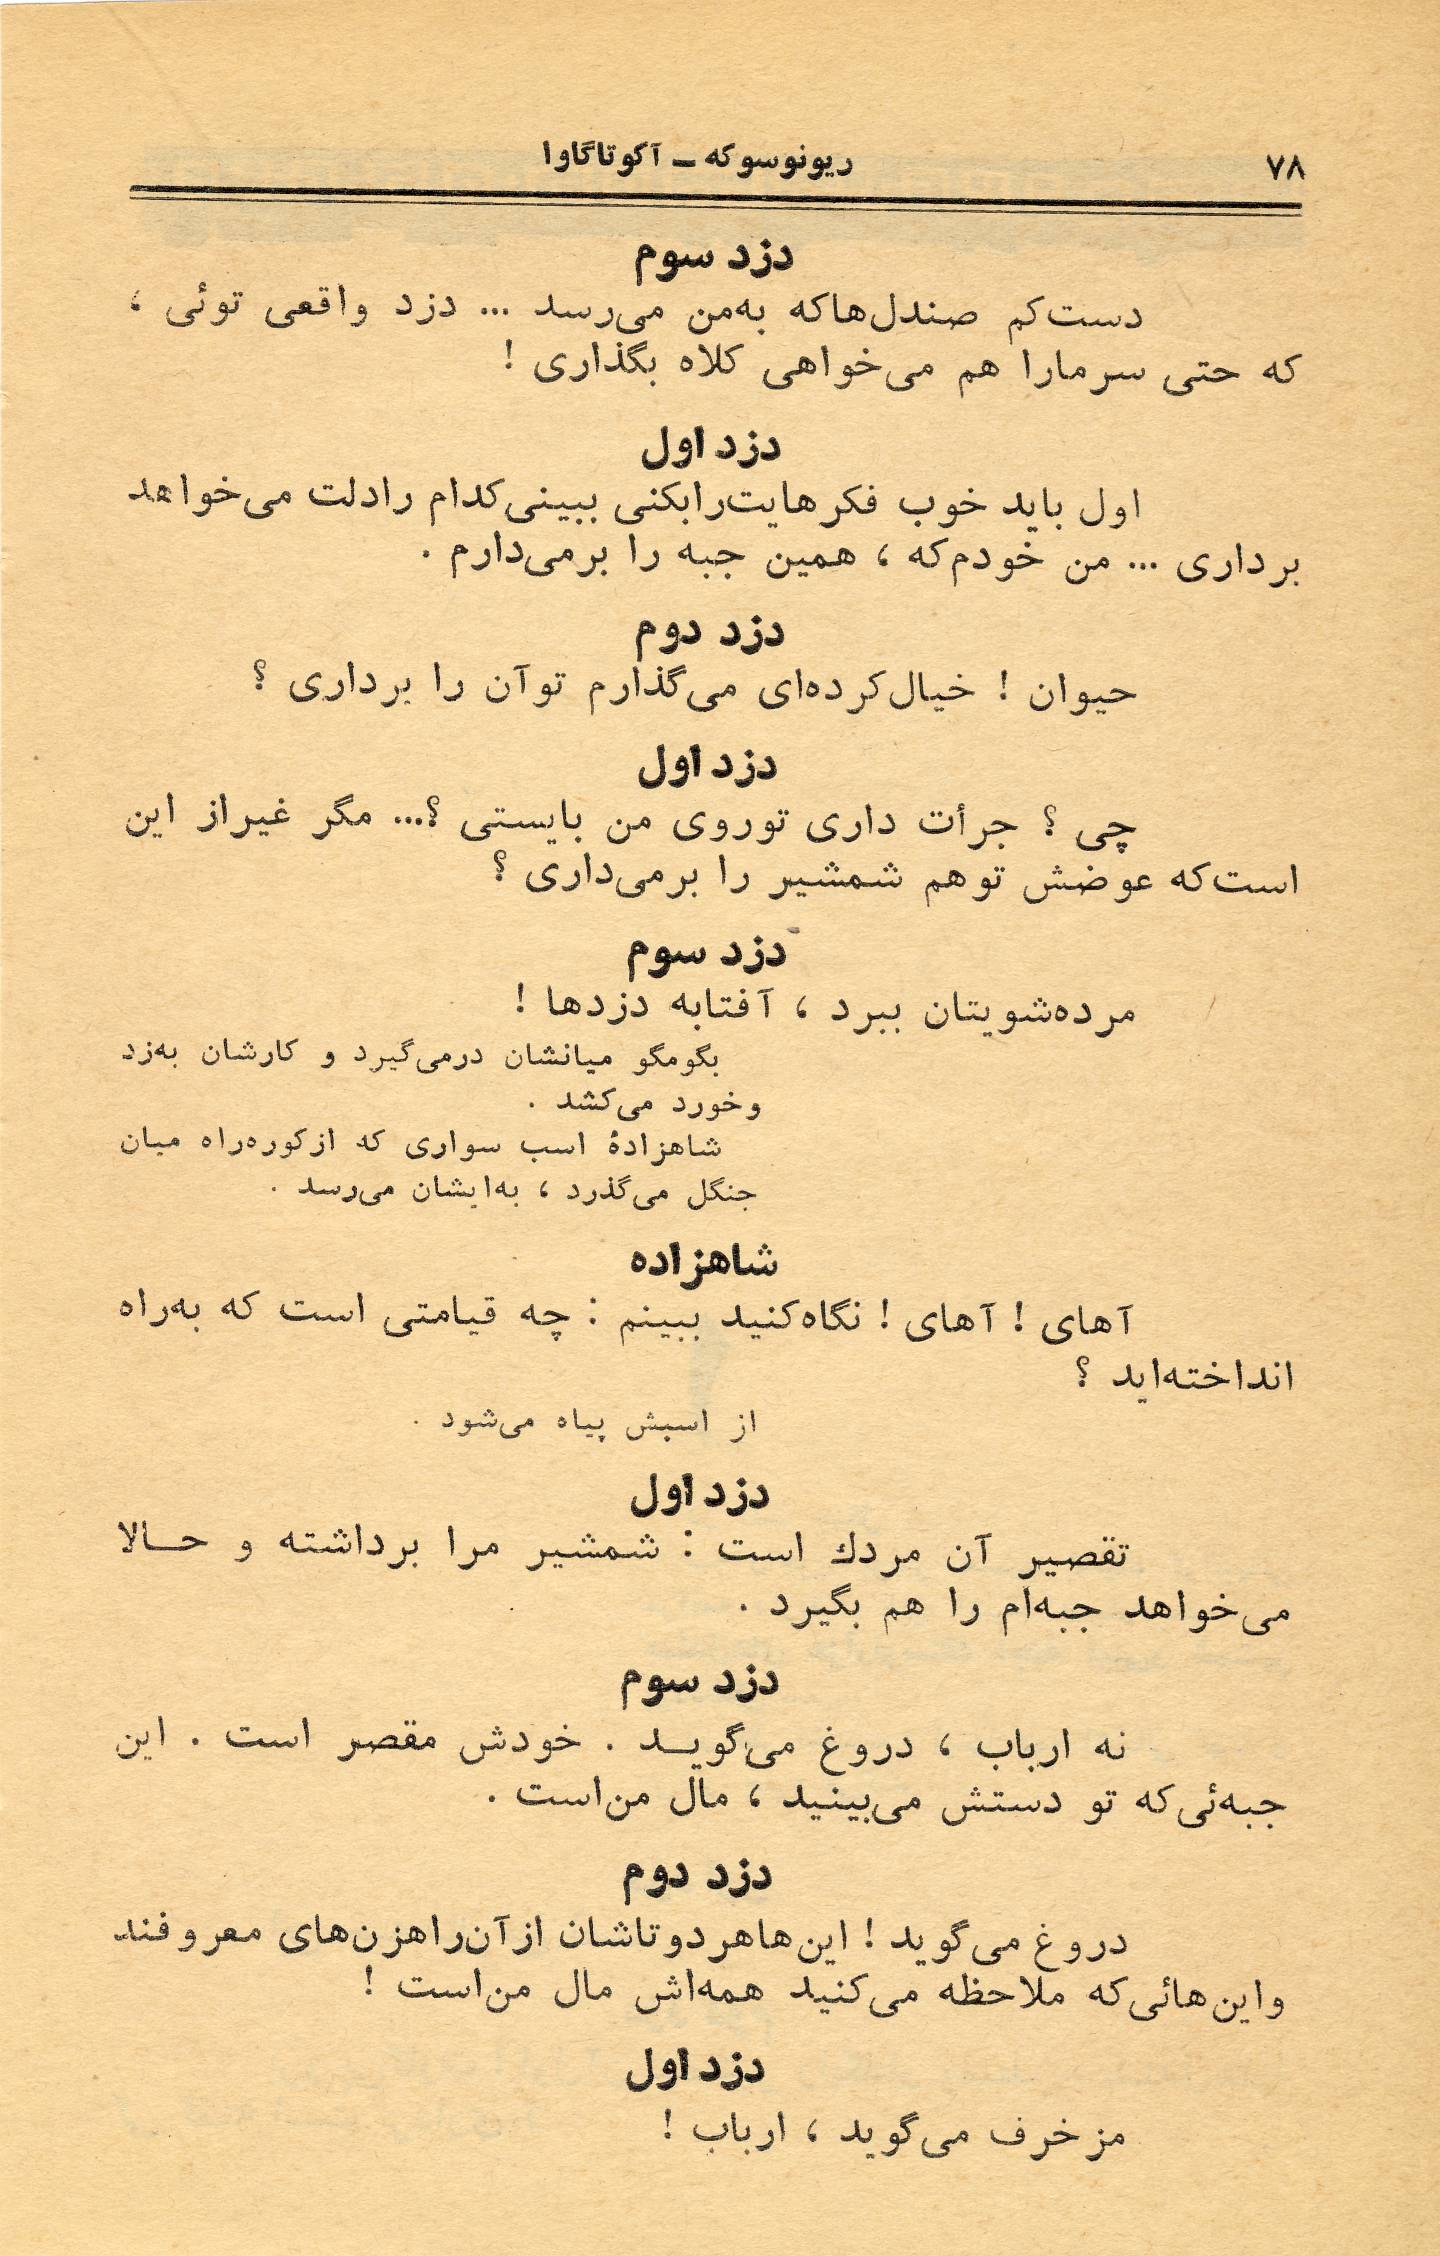 ۷۸
ریونوسوکه ـ آکوتاگاوا
دزد سوم
دست‌کم صندل‌هاکه به‌من می‌رسد ... دزد واقعی توئی ،
که حتی سرمارا هم می‌خواهی کلاه بگذاری !
دزد اول
اول باید خوب فکرهایت‌رابکنی ببینی‌کدام رادلت می‌خواهد
برداری ... من خودم‌که ، همین جبه را برمی‌دارم .
دزد دوم
حیوان ! خیال‌کرده‌ای می‌گذارم توآن را برداری ؟
دزد اول
چی ؟ جرأت داری توروی من بایستی ؟... مگر غیراز این
است‌که عوضش توهم شمشیر را برمی‌داری ؟
دزد سوم
مرده‌شویتان ببرد ، آفتابه دزدها !
بگومگو میانشان درمی‌گیرد و کارشان به‌زد
وخورد می‌کشد .
شاهزادهٔ اسب سواری که ازکوره‌راه میان
جنگل می‌گذرد ، به‌ایشان می‌رسد .
شاهزاده
آهای ! آهای ! نگاه‌کنید ببینم : چه قیامتی است که به‌راه
انداخته‌اید ؟
از اسبش پیاه می‌شود .
دزد اول
تقصیر آن مردك است : شمشیر مرا برداشته و حـالا
می‌خواهد جبه‌ام را هم بگیرد .
دزد سوم
نه ارباب ، دروغ می‌گویـد . خودش مقصر است . این
جبه‌ئی‌که تو دستش می‌بینید ، مال من‌است .
دزد دوم
دروغ می‌گوید ! این‌هاهردوتاشان ازآن‌راهزن‌های معروفند
واین‌هائی‌که ملاحظه می‌کنید همه‌اش مال من‌است !
دزد اول
مزخرف می‌گوید ، ارباب !